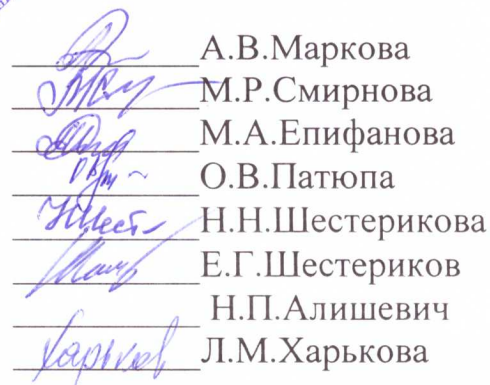 А.В.Маркова
М.Р.Смирнова
М.А.Епифанова
О.В.Патюпа
Н.Н.Шестерикова
Е.Г.Шестериков
Н.П.Алишевич
Л.М.Харькова